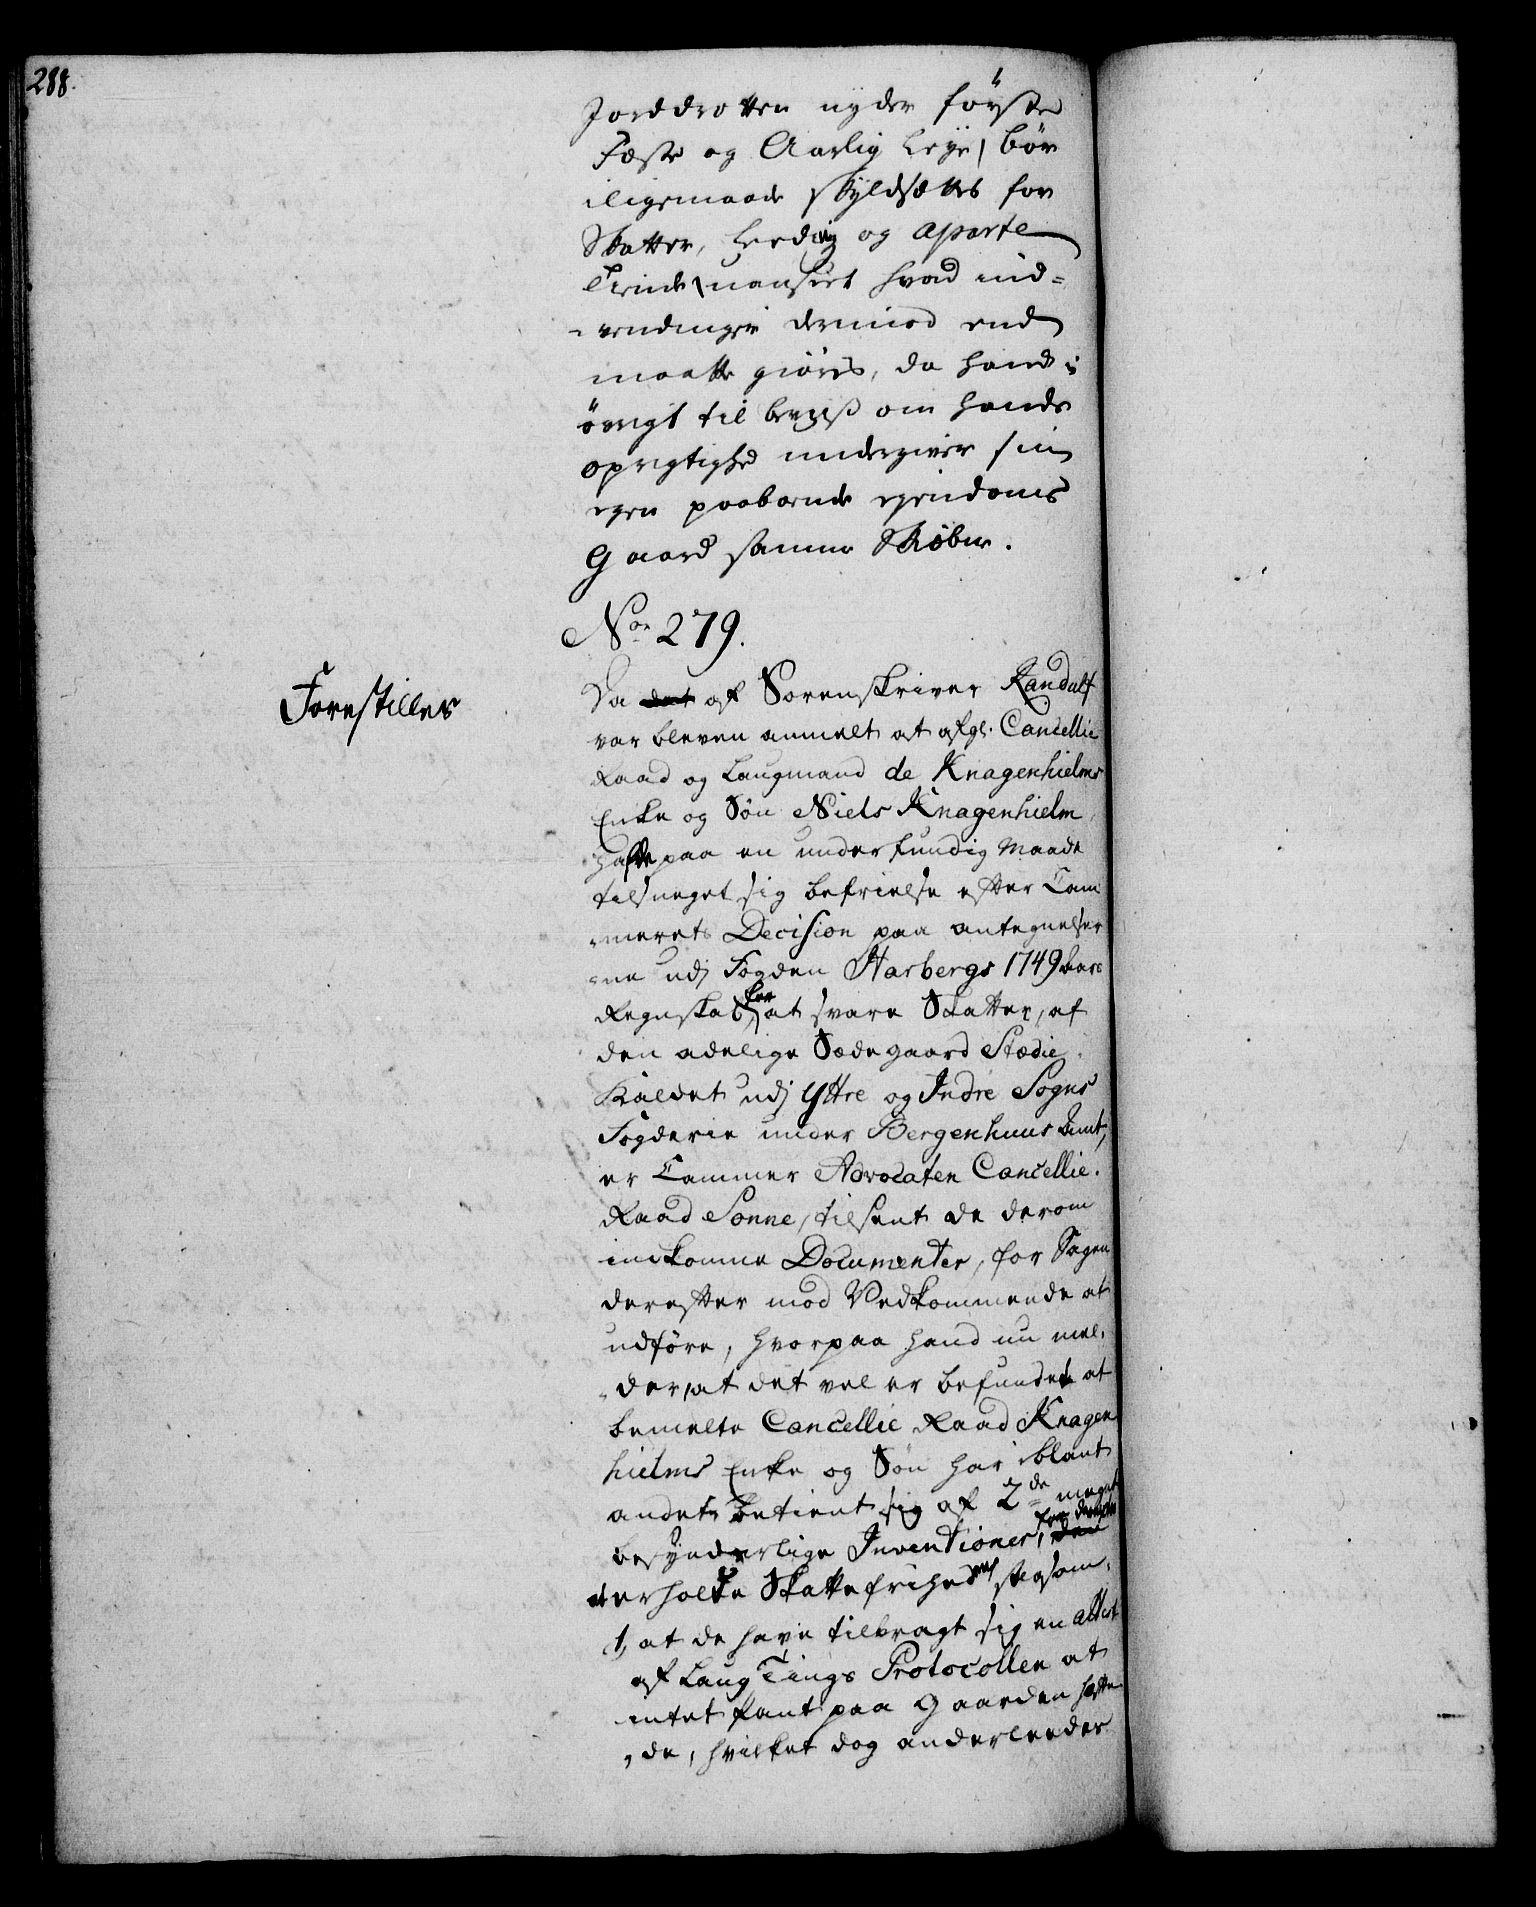 288.
Jorddrotten nyder første
Fæste og Aarlig Leye/ bør
iligemaade skyldsættes for
Skatter, Leeding og aparte
Tiende uanseet hvad ind=
-vendinger derimod end
maatte giøres, da hand i
øvrigt til beviis om hands
oprigtighed undergiver sin
egen paaboende eyendoms
Gaard samme Skiebne.
No. 279.
Forestilles
Da det af Sorenskriver Randulf
var bleven anmelt at afgl. Cancellie
Raad og Laugmand de Knagenhielms
Enke og Søn Niels Knagenhielm
hafde paa en underfundig Maade
tilsneget sig befrielse efter Cam
-merets Decision paa antegnelser
-ne udj Fogden Harbergs 1749 Aars
Regnskab, for at svare Skatter, af
den adelige Sædegaard Stædie
Kaldet udj Yttre og Indre Sogns
Fogderie under Bergenhuus Amt,
er Cammer Advocaten Cancellie-
Raad Sonne, tilsent de derom
indkomne Documenter, for Sagen
derefter mod Vedkommende at
udføre, hvorpaa hand nu mel-
-der, at det vel er befundet at
bemelte Cancellie Raad Knagen
hielms Enke og Søn har iblant
andet betient sig af 2de meget
besynderlige Inventioner, for derved
at erholde Skattefrihed saasom,
1, at de have tilbragt sig en attest
af Laug Tings Protocollen at
intet Pant paa Gaarden hæfte
-de, hvilket dog anderleedes